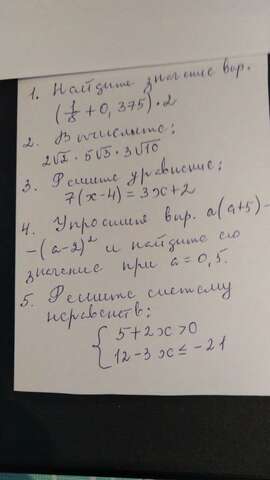 1. Найдите значение выр.
(1/8 + 0,375) · 2
2. Вычислите:
2√2 · 5√3 · 3√10
3. Решите уравнение:
7(x-4) = 3x+2
4. Упростить выр. a(a+5) -
-(a-2)² и найдите его
значение при a = 0,5.
5. Решите систему
неравенств:
{ 5+2x>0
12-3x ≤ -21